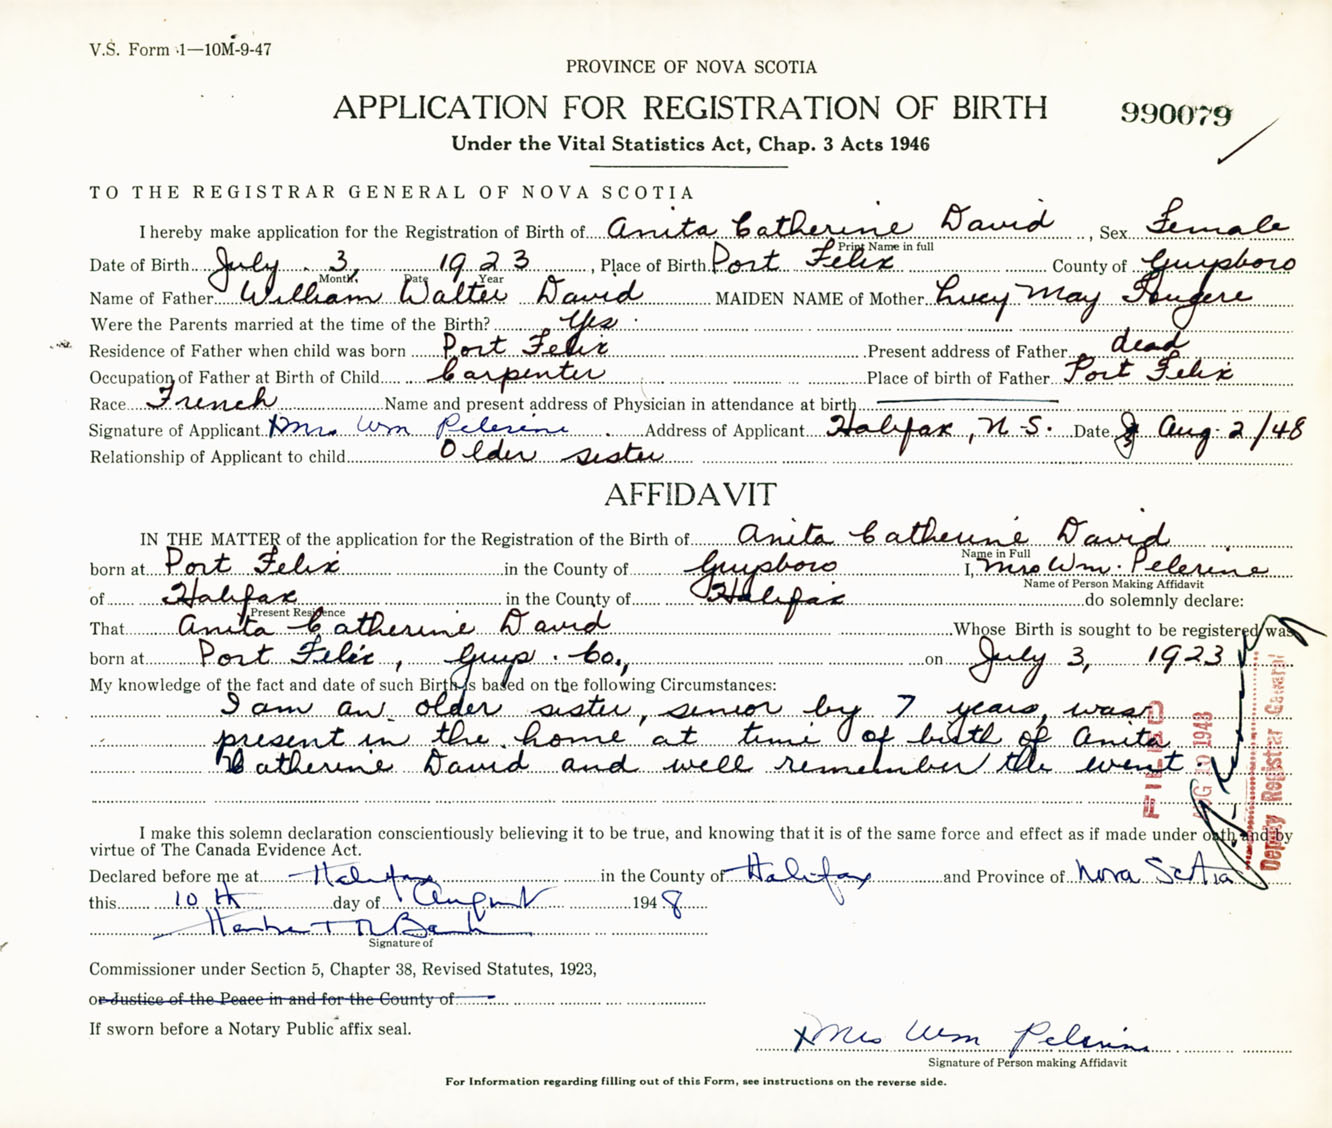 V.S. Form 1—10M-9-47
PROVINCE OF NOVA SCOTIA
APPLICATION FOR REGISTRATION OF BIRTH 990079
Under the Vital Statistics Act, Chap. 3 Acts 1946
TO THE REGISTRAR GENERAL OF NOVA SCOTIA
I hereby make application for the Registration of Birth of Anita Catherine David, Sex Female
Print Name in full
Date of Birth July 3, 1923, Place of Birth Port Felix County of Guysboro
Month Date Year
Name of Father William Walter David MAIDEN NAME of Mother Lucy May Fougere
Were the Parents married at the time of the Birth? Yes
Residence of Father when child was born Port Felix Present address of Father dead
Occupation of Father at Birth of Child Carpenter Place of birth of Father Port Felix
Race French Name and present address of Physician in attendance at birth
Signature of Applicant x Mrs Wm Pelerine Address of Applicant Halifax, N.S. Date Aug. 2/48
Relationship of Applicant to child Older sister
AFFIDAVIT
IN THE MATTER of the application for the Registration of the Birth of Anita Catherine David
Name in Full
born at Port Felix in the County of Guysboro I, Mrs Wm. Pelerine
Name of Person Making Affidavit
of Halifax in the County of Halifax do solemnly declare:
Present Residence
That Anita Catherine David Whose Birth is sought to be registered was
born at Port Felix, Guys. Co., on July 3, 1923
My knowledge of the fact and date of such Birth is based on the following Circumstances:
I am an older sister, senior by 7 years, was
present in the home at time of birth of Anita
Catherine David and well remember the event.
FILED
AUG 10 1948
Deputy Registrar General
I make this solemn declaration conscientiously believing it to be true, and knowing that it is of the same force and effect as if made under oath and by
virtue of The Canada Evidence Act.
Declared before me at Halifax in the County of Halifax and Province of Nova Scotia
this 10th day of August 1948
Signature of
Commissioner under Section 5, Chapter 38, Revised Statutes, 1923,
or Justice of the Peace in and for the County of
If sworn before a Notary Public affix seal.
x Mrs Wm Pelerine
Signature of Person making Affidavit
For Information regarding filling out of this Form, see instructions on the reverse side.